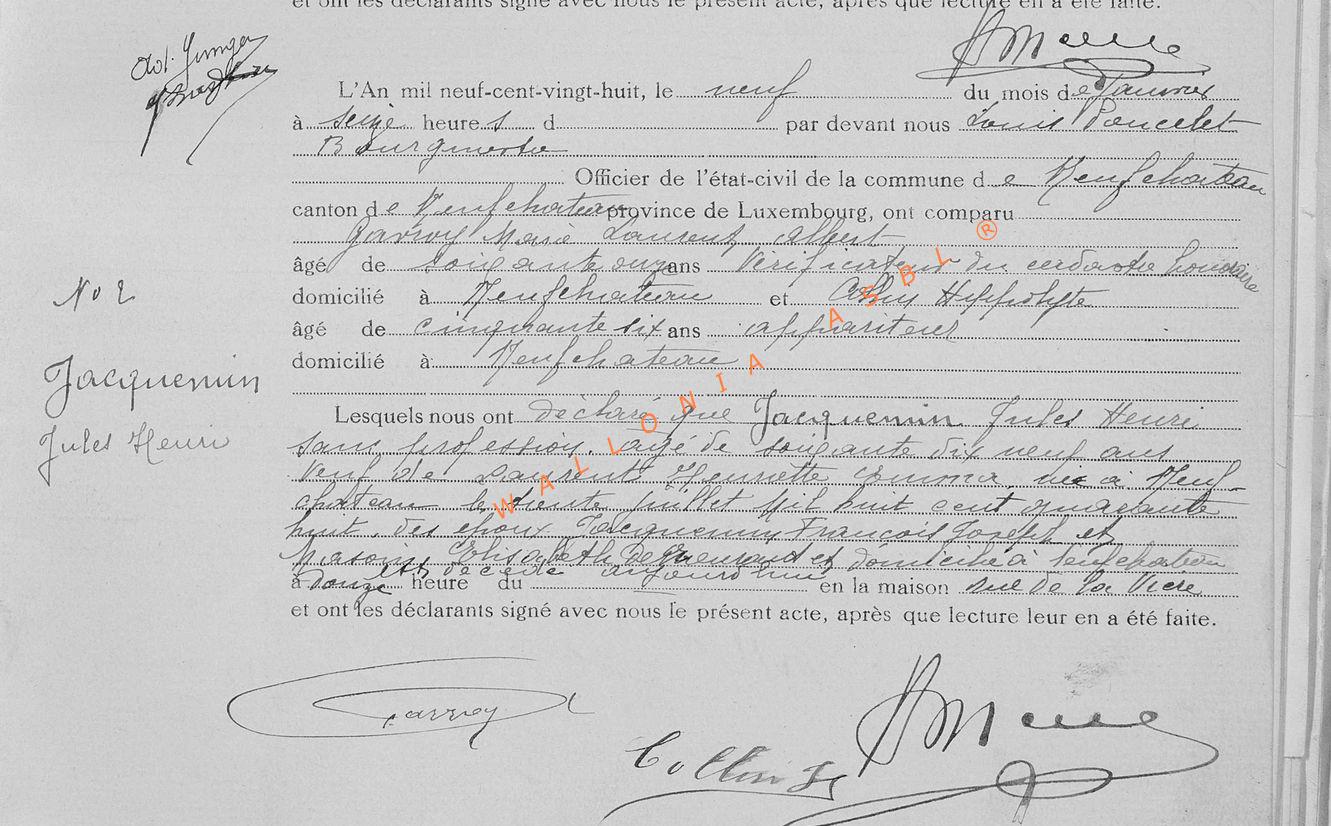 et ont les déclarants signé avec nous le présent acte, après que lecture en a été faite.
L'An mil neuf-cent-vingt-huit, le neuf du mois de Janvier
à seize heures d par devant nous Louis Poncelet
Bourgmestre
Officier de l'état-civil de la commune de Neufchateau
canton de Neufchateau province de Luxembourg, ont comparu
Gavroy Marie Laurent Albert
âgé de soixante onze ans Vérificateur du cadastre honoraire
N° 2
domicilié à Neufchateau et Hippolyte
âgé de cinquante six ans appariteur
domicilié à Neufchateau
Jacquemin
Jules Henri
Lesquels nous ont déclaré que Jacquemin Jules Henri
sans profession, agé de soixante dix neuf ans
veuf de Laurent Henriette Emma, né à Neuf-
chateau le trente juillet Mil huit cent quarante
huit, des époux Jacquemin François Joseph et
Elisabeth et domicilié à Neufchateau
est décédé aujourd'hui
à douze heure du en la maison rue de la
et ont les déclarants signé avec nous le présent acte, après que lecture leur en a été faite.
Gavroy
WALLONIA ASBL ®